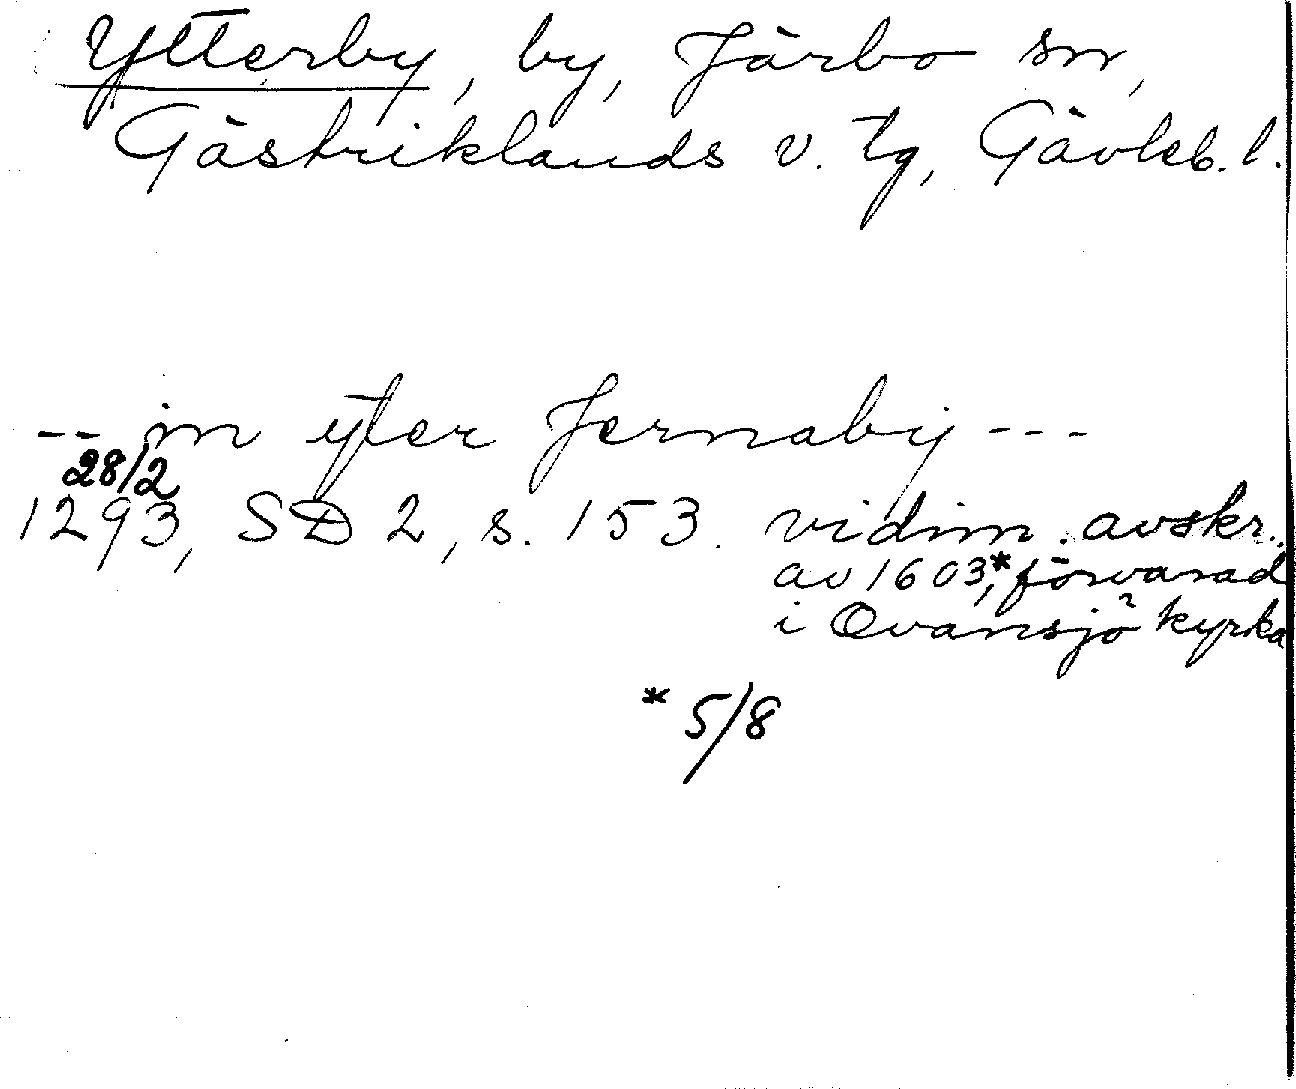 Ytterby, by, Järbo sn,
Gästriklands v. tg, Gävleb. l.
-- in yter Jernaby ---
28/2
1293, SD 2, s. 153. vidim. avskr.,
av 1603,* förvarad
i Ovansjö kyrka
* 5/8